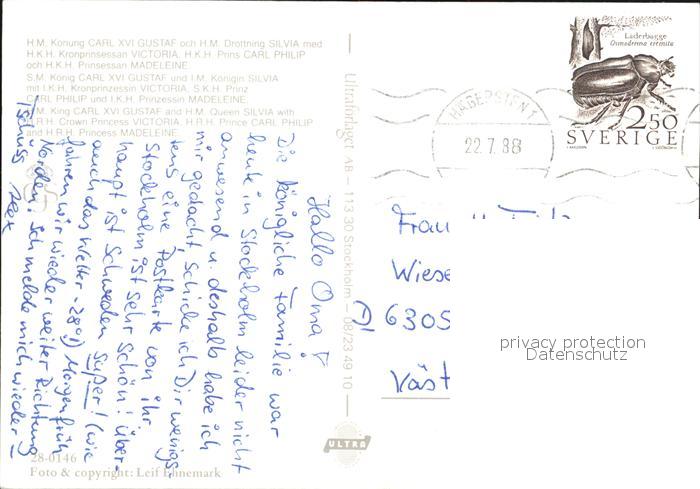 H.M. Konung CARL XVI GUSTAF och H.M. Drottning SILVIA med
H.K.H. Kronprinsessan VICTORIA, H.K.H. Prins CARL PHILIP
och H.K.H. Prinsessan MADELEINE.
S.M. König CARL XVI GUSTAF und I.M. Königin SILVIA
mit I.K.H. Kronprinzessin VICTORIA, S.K.H. Prinz
CARL PHILIP und I.K.H. Prinzessin MADELEINE.
H.M. King CARL XVI GUSTAF and H.M. Queen SILVIA with
H.R.H. Crown Princess VICTORIA, H.R.H. Prince CARL PHILIP
and H.R.H. Princess MADELEINE.
Hallo Oma!
Die königliche Familie war
heute in Stockholm leider nicht
anwesend u. deshalb habe ich
mir gedacht, schicke ich Dir wenigs-
tens eine Postkarte von ihr.
Stockholm ist sehr schön! Über-
haupt ist Schweden super! (wie
auch das Wetter - 28°!) Morgen früh
fahren wir wieder weiter Richtung
Norden! Ich melde mich wieder -
Tschüss
28-0146
Foto & copyright: Leif Ehnemark
Ultraförlaget AB – 113 30 Stockholm – 08/23 49 10
ULTRA
HÄGERSTEN 1
22.7.88
Läderbagge
Osmoderma eremita
2.50
SVERIGE
Frau
Wiese
D 6305
Väst
privacy protection
Datenschutz